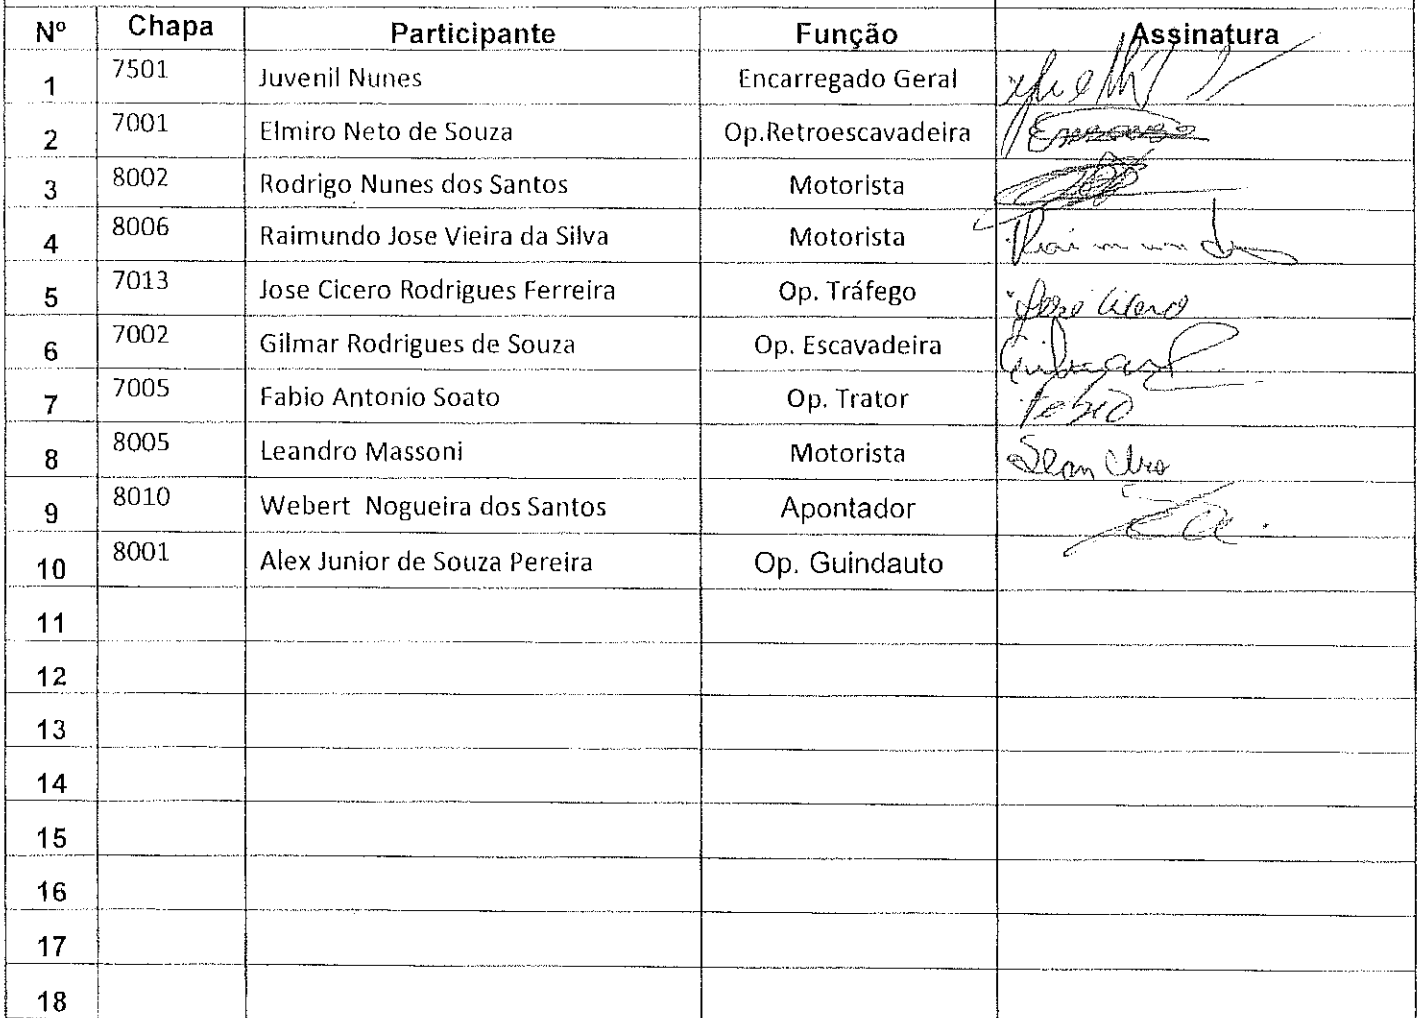 Nº Chapa Participante Função Assinatura
1 7501 Juvenil Nunes Encarregado Geral
2 7001 Elmiro Neto de Souza Op.Retroescavadeira
3 8002 Rodrigo Nunes dos Santos Motorista
4 8006 Raimundo Jose Vieira da Silva Motorista Raimundo
5 7013 Jose Cicero Rodrigues Ferreira Op. Tráfego Jose Cicero
6 7002 Gilmar Rodrigues de Souza Op. Escavadeira
7 7005 Fabio Antonio Soato Op. Trator Fabio
8 8005 Leandro Massoni Motorista Leandro
9 8010 Webert Nogueira dos Santos Apontador
10 8001 Alex Junior de Souza Pereira Op. Guindauto
11
12
13
14
15
16
17
18